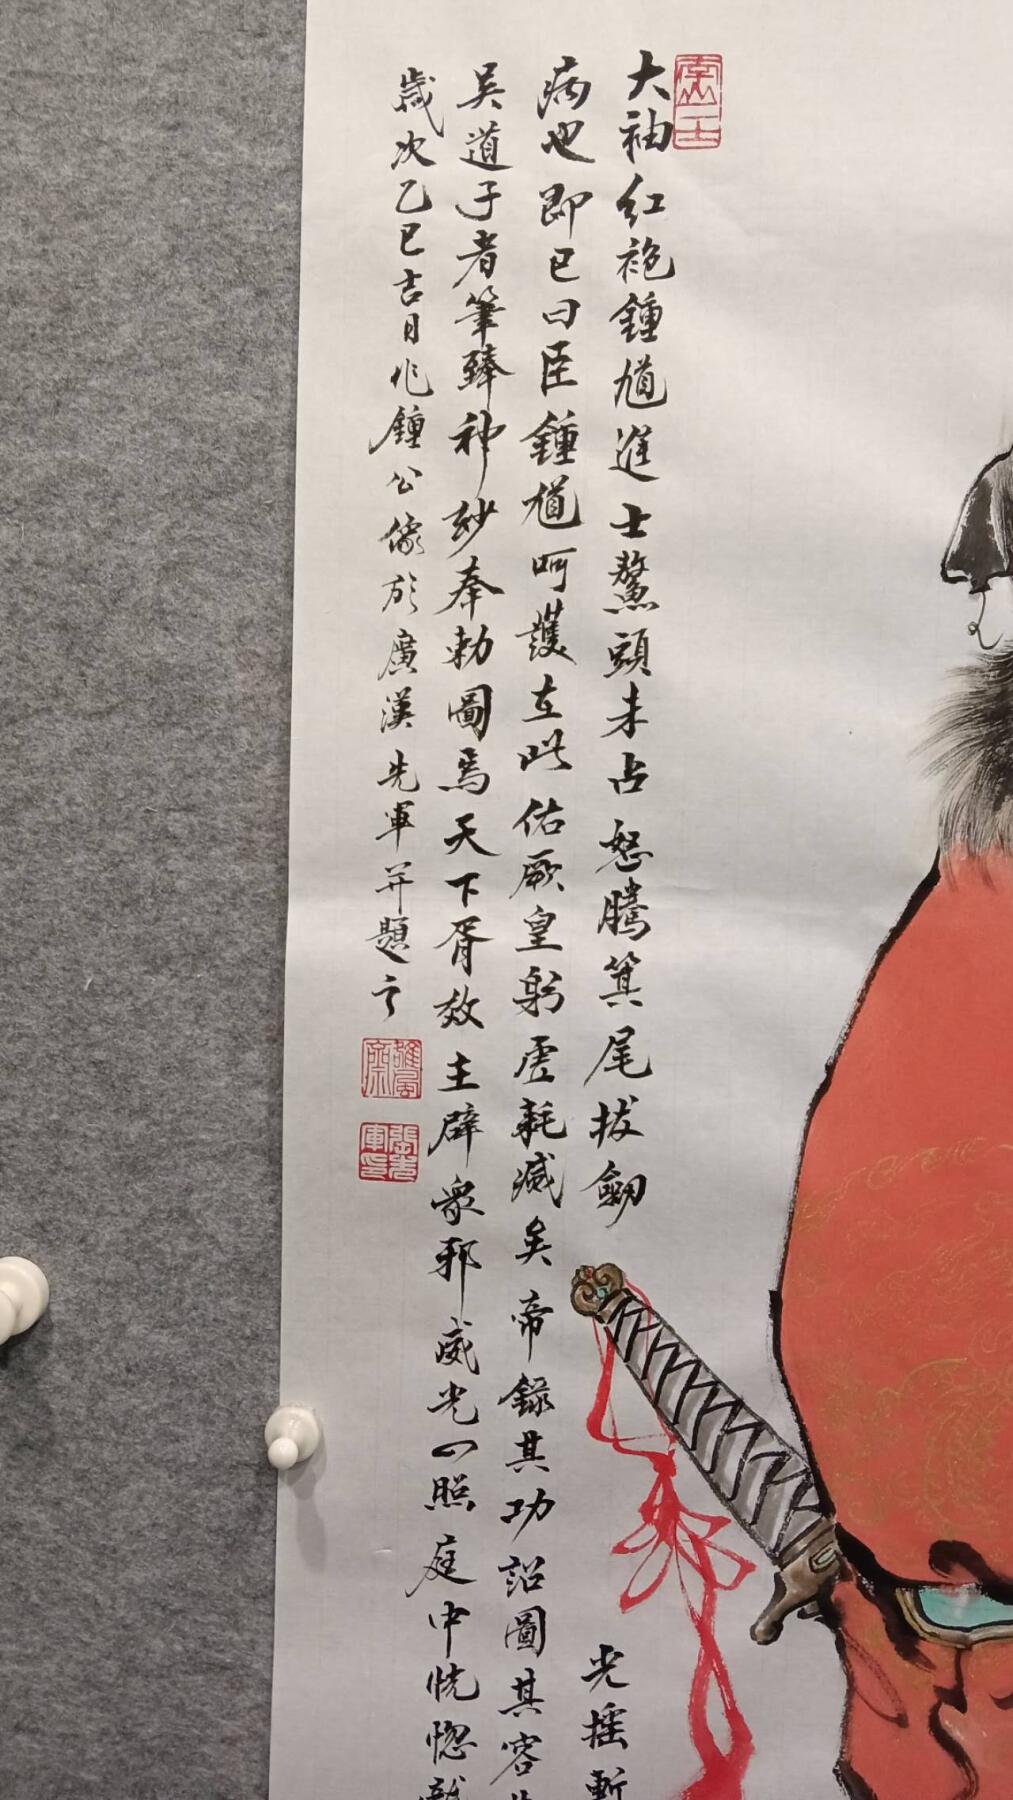 大袖紅袍鍾馗進士鰲頭未占怒騰箕尾拔劒
光搖斬
病也即已曰臣鍾馗呵護在此佑厥皇躬虛耗滅矣帝錄其功詔圖其容
吳道子者筆臻神妙奉勅圖焉天下胥效主辟衆邪威光一照庭中恍惚
歲次乙巳吉日作鍾公像於廣漢先軍并題